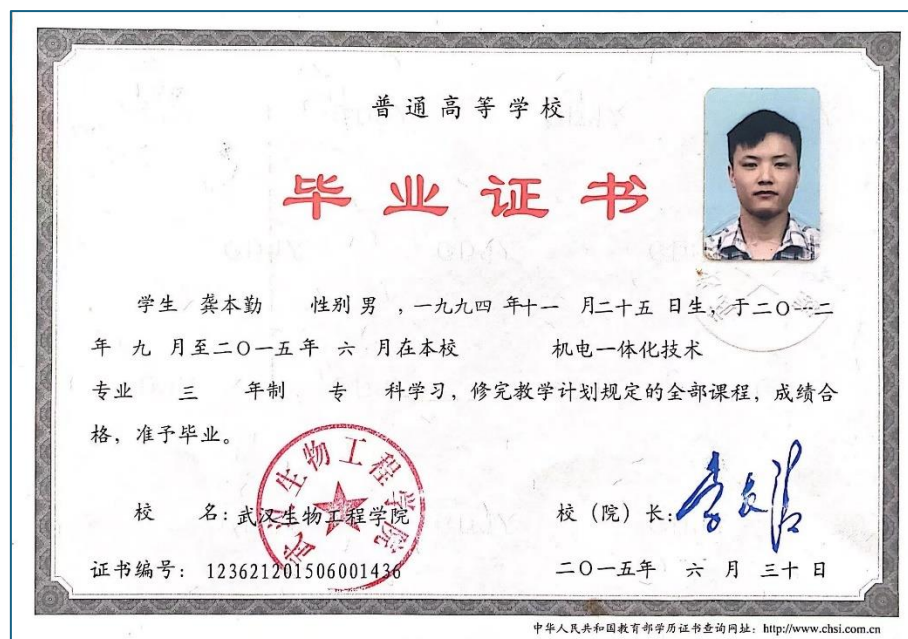 普通高等学校
毕业证书
学生 龚本勤 性别 男 ，一九九四 年十一 月二十五 日生，于二〇一二
年 九 月至二〇一五年 六 月在本校 机电一体化技术
专业 三 年制 专 科学习，修完教学计划规定的全部课程，成绩合
格，准予毕业。
校 名：武汉生物工程学院
武汉生物工程学院
校（院）长：
证书编号： 123621201506001436
二〇一五年 六 月 三十 日
中华人民共和国教育部学历证书查询网址：http://www.chsi.com.cn